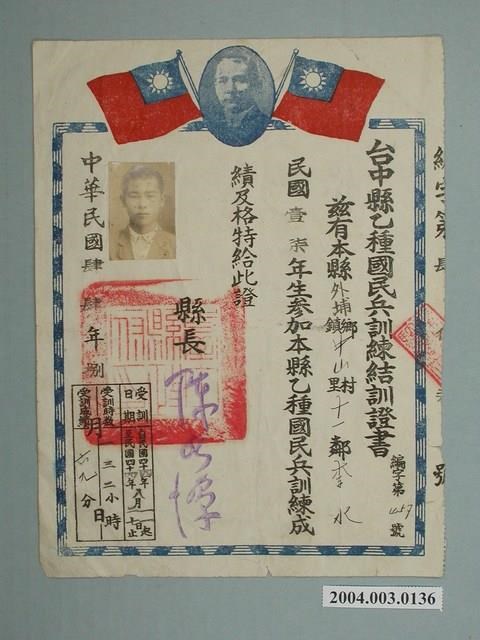 台中縣乙種國民兵訓練結訓證書
編字第 號
茲有本縣外埔鄉鎮中山村里十一鄰李水
民國壹柒年生參加本縣乙種國民兵訓練成
績及格特給此證
縣長
中華民國肆肆年捌月 日
受訓日期
自民國四十四年八月一日起
至民國四十四年八月 日止
受訓時數
三二小時
受訓成績
六九分
號
2004.003.0136